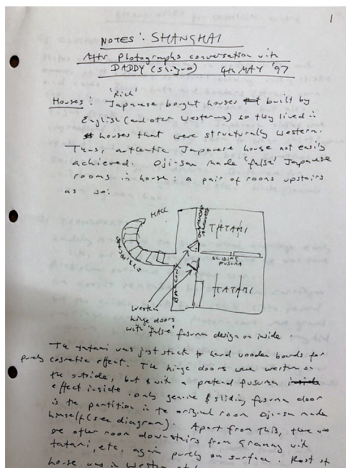 1
NOTES: SHANGHAI
After photographs conversation with
DADDY (Shigeo) 4th MAY '97
'Rich'
Houses: Japanese bought houses built by
English (and other Westerners) so they lived in
houses that were structurally western.
Thus, authentic Japanese house not easily
achieved. Oji-san made 'false' Japanese
rooms in house: a pair of rooms upstairs
as so:
HALL
TATAMI
SLIDING
FUSUMA
BALCONY
TATAMI
Western
hinge doors
with 'false' fusuma design on inside.
The tatami was just stuck to hard wooden boards for
purely cosmetic effect. The hinge doors were western on
the outside, but with a pretend fusuma
effect inside. Only genuine sliding fusuma door
is the partition in the original room Oji-san made
himself (see diagram). Apart from this, there was
one other room downstairs from Granny with
tatami, etc, again purely on surface. Rest of
house was in Western